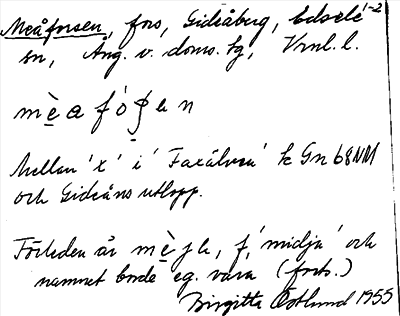 Meåforsen, fors, Gideåberg, Edsele -2
sn, Ång. v. doms. hg, Vrnl. l.
mèafórsen
Mellan 'x' i 'Faxälven' k Gn 68NM
och Gideåns utlopp.
Förleden är mèje, f, 'midja' och
namnet borde eg. vara (forts.)
Birgitta Östlund 1955